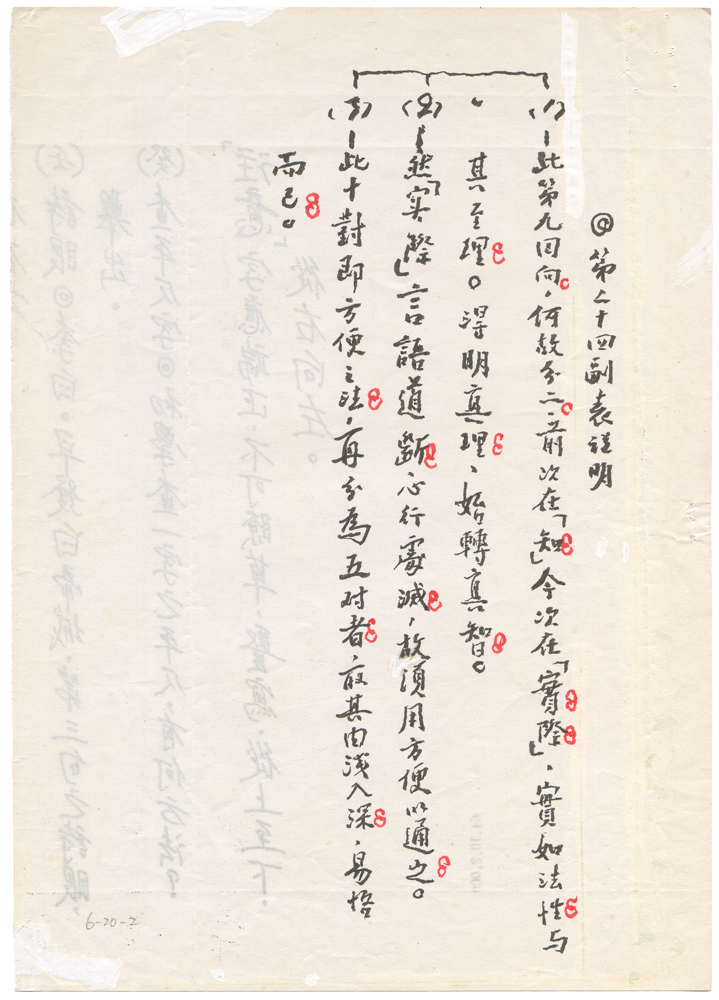 ◎第二十四副表説明
(1)—此第九回向,何故分二,前次在「知」今次在「實際」,實如法性与
其至理。得明真理、始轉真智。
(2)—然「实際」言語道斷心行處滅,故須用方便以通之。
(3)—此十對即方便之法,再分為五对者,取其由淺入深、易悟
而已。
6-20-2